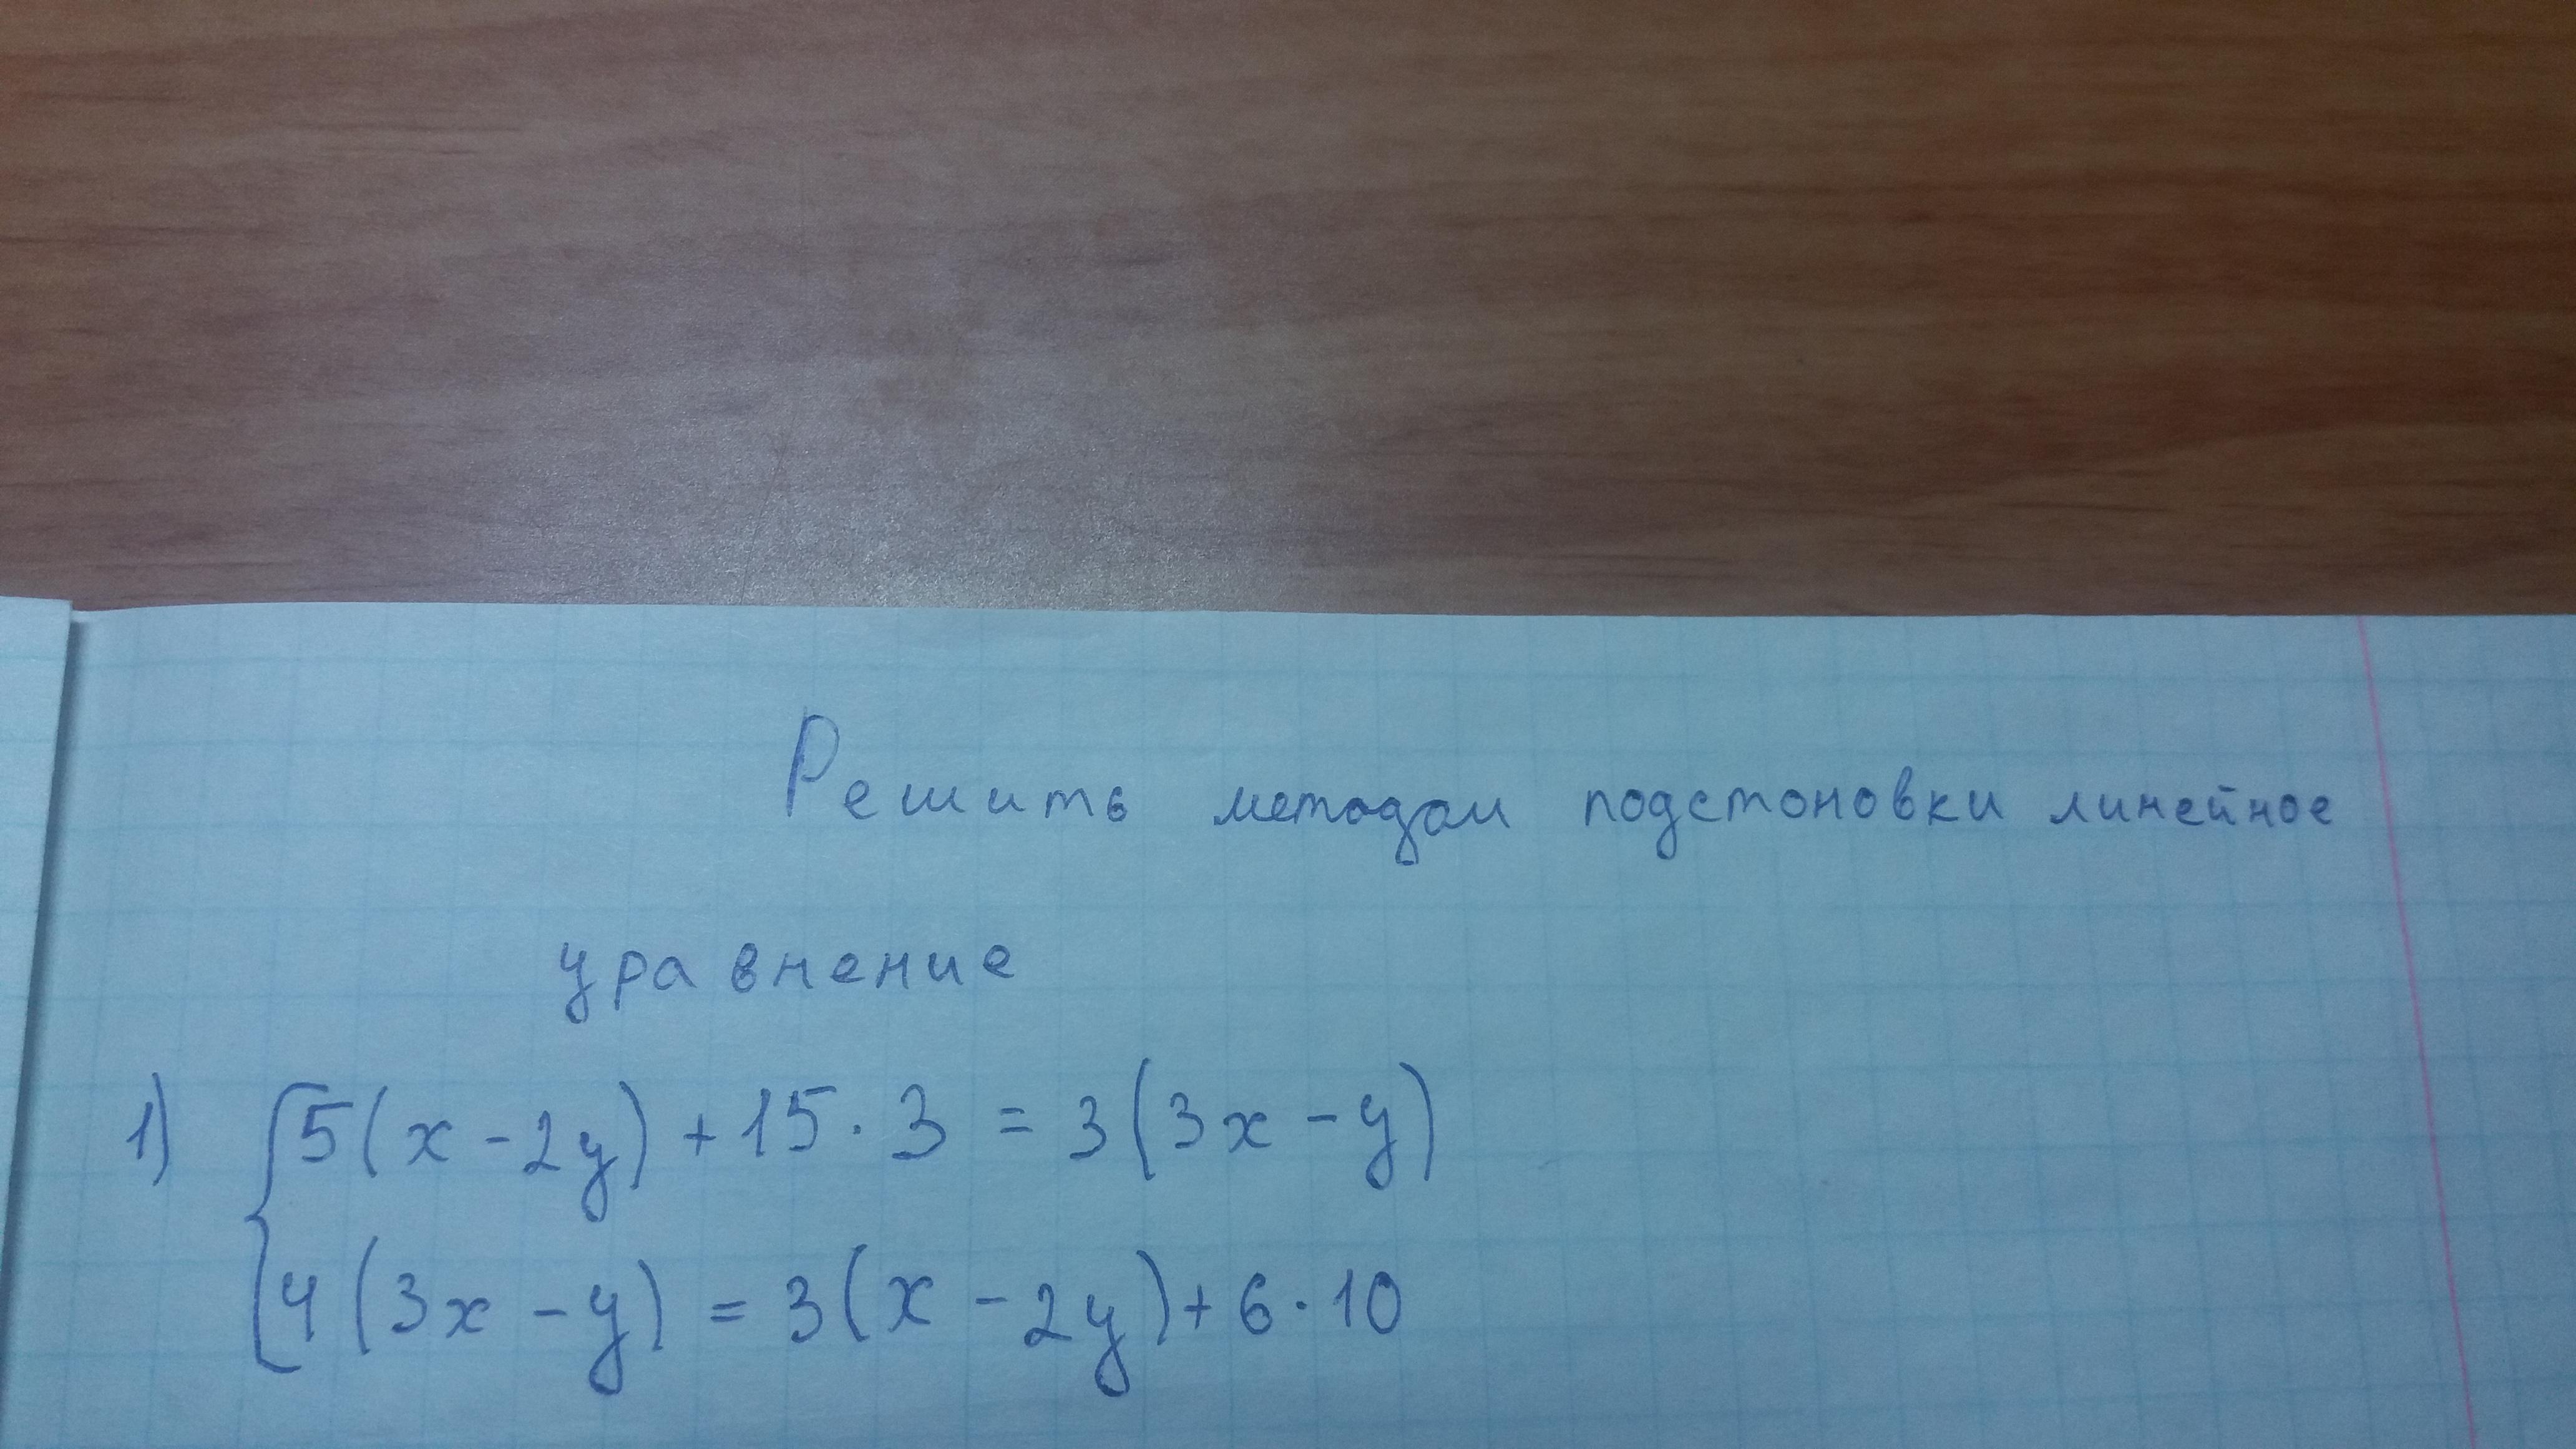 Решить методом подстоновки линейное
уравнение
1) { 5(x - 2y) + 15 · 3 = 3(3x - y)
4(3x - y) = 3(x - 2y) + 6 · 10